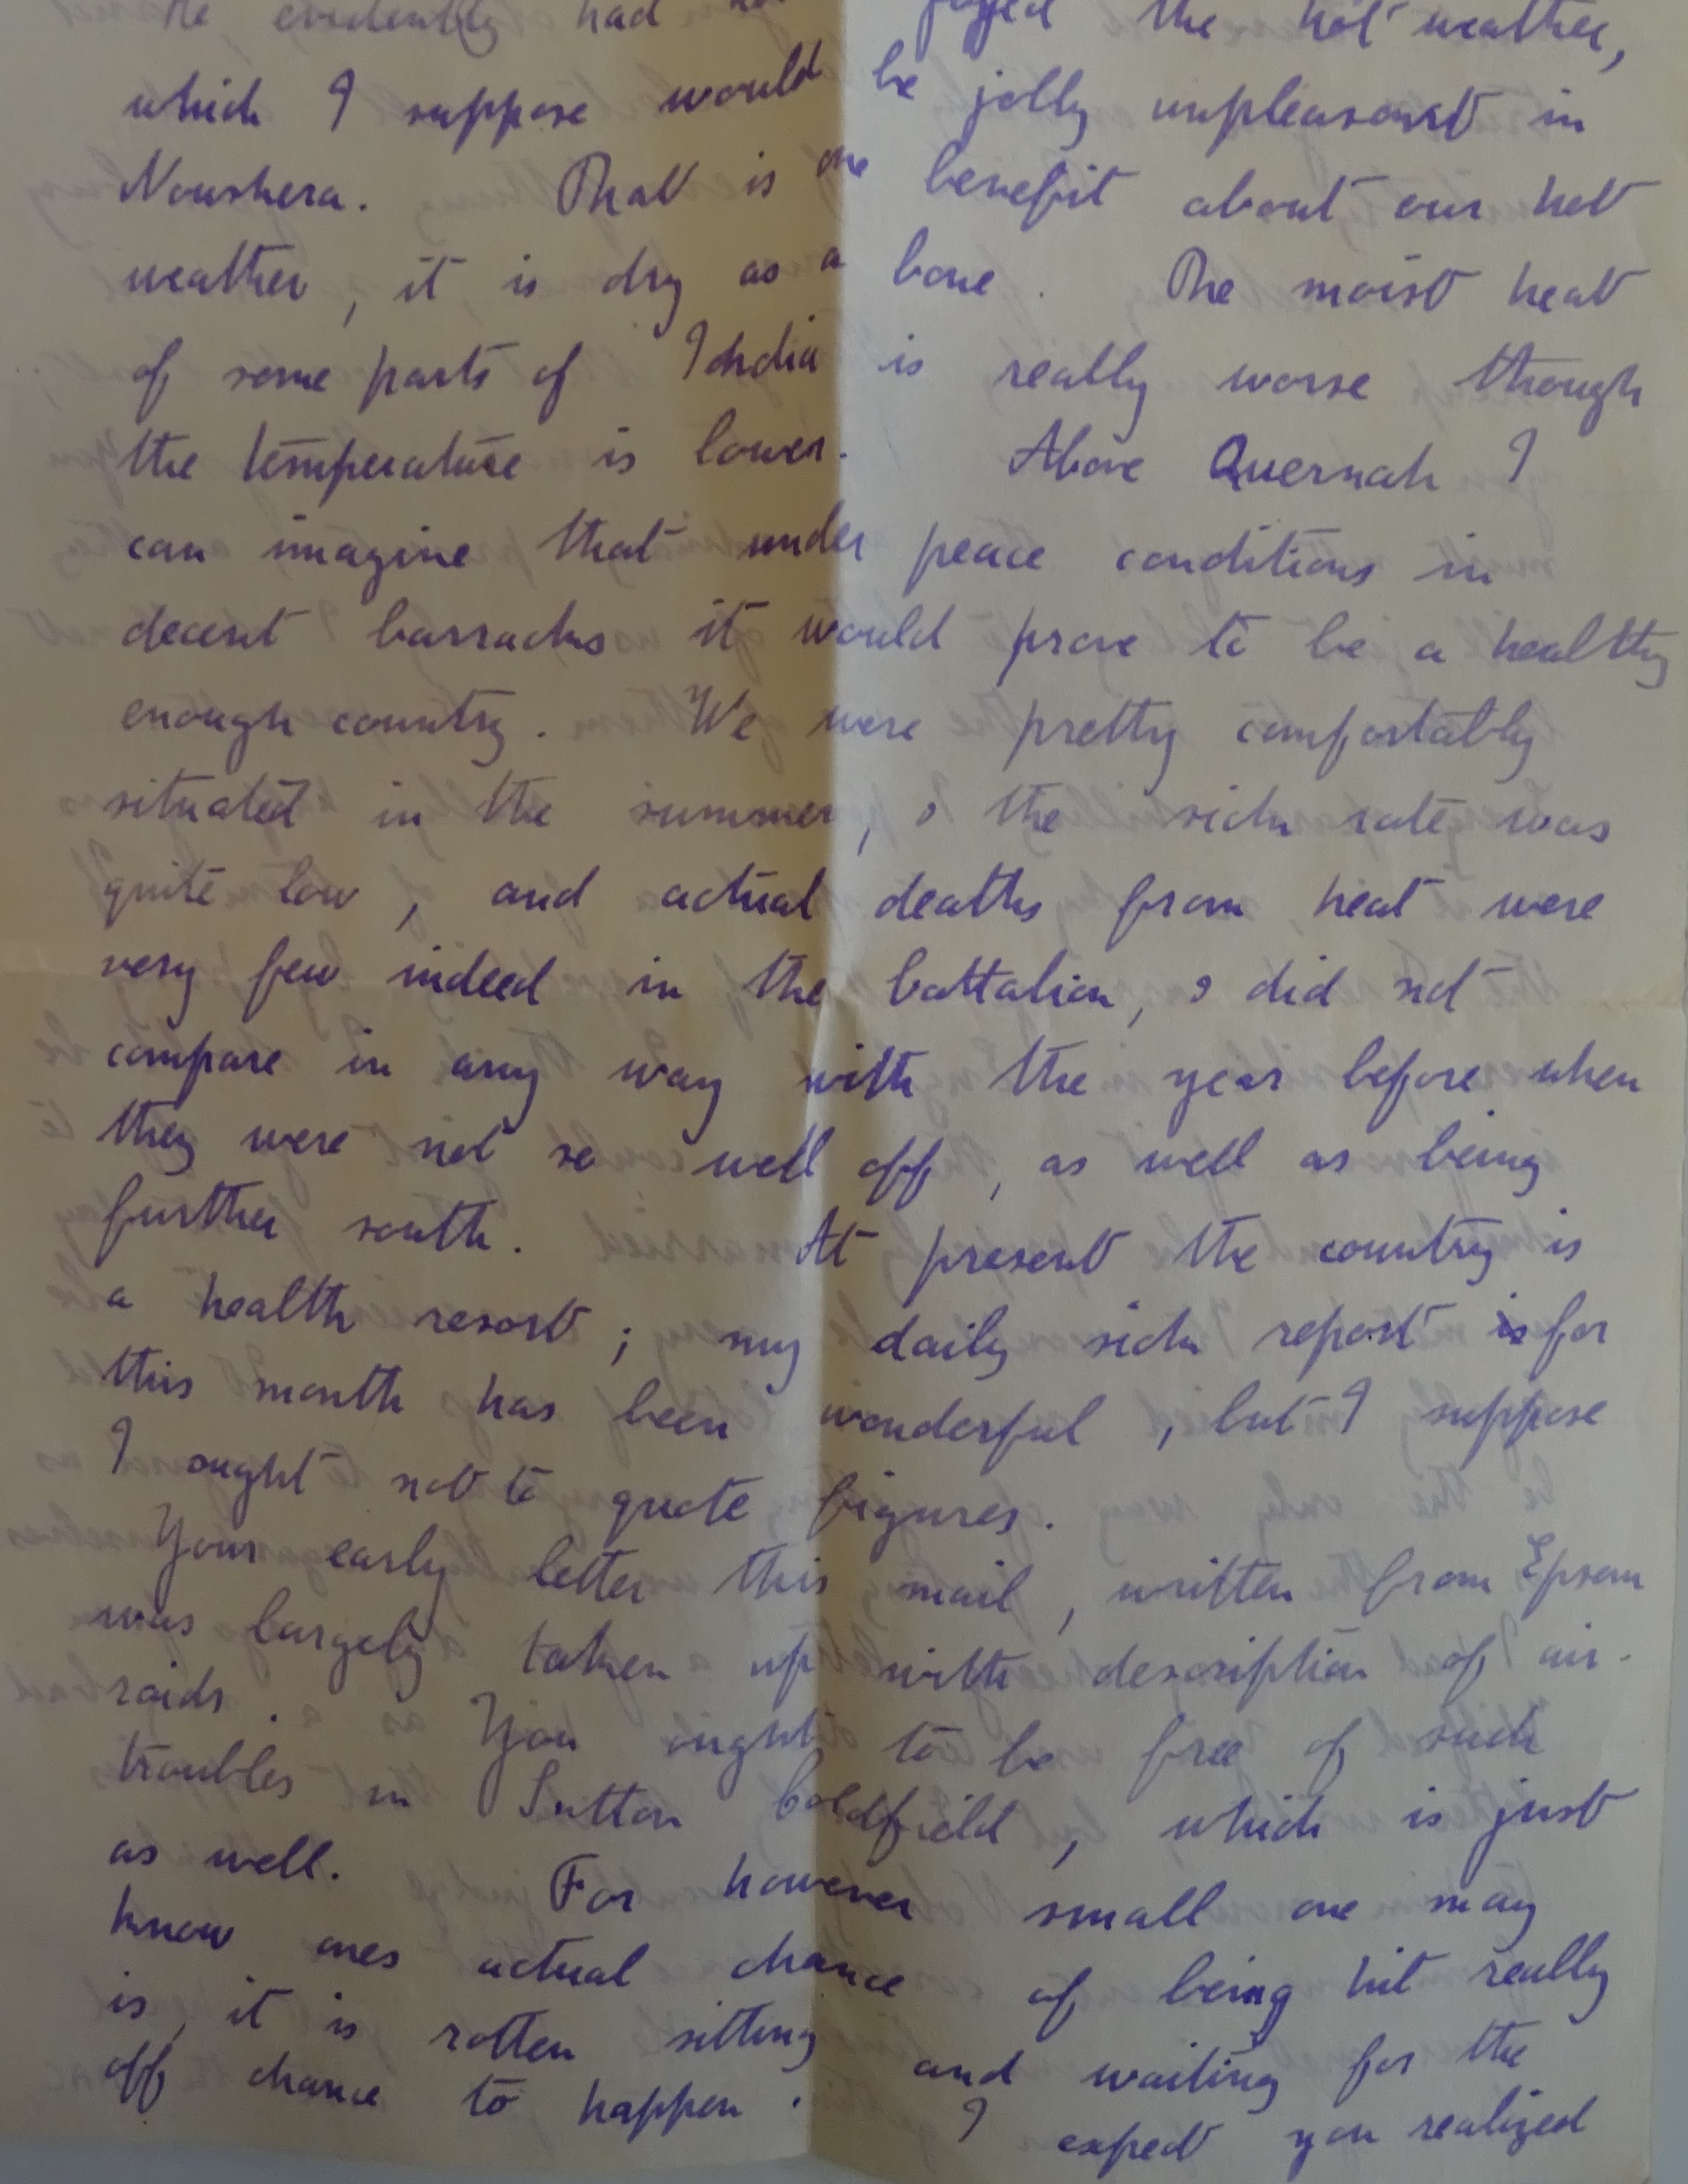 He evidently had not enjoyed the hot weather,
which I suppose would be jolly unpleasant in
Nowshera. That is one benefit about our hot
weather, it is dry as a bone. The moist heat
of some parts of India is really worse though
the temperature is lower. Above Quernah I
can imagine that under peace conditions in
decent barracks it would prove to be a healthy
enough country. We were pretty comfortably
situated in the summer, & the sick rate was
quite low, and actual deaths from heat were
very few indeed in the battalion, & did not
compare in any way with the year before when
they were not so well off, as well as being
further south. At present the country is
a health resort; my daily sick report for
this month has been wonderful, but I suppose
I ought not to quote figures.
Your early letter this mail, written from Epsom
was largely taken up with description of air-
raids. You ought to be free of such
troubles in Sutton Coldfield, which is just
as well. For however small one may
know ones actual chance of being hit really
is, it is rotten sitting and waiting for the
off chance to happen. I expect you realized